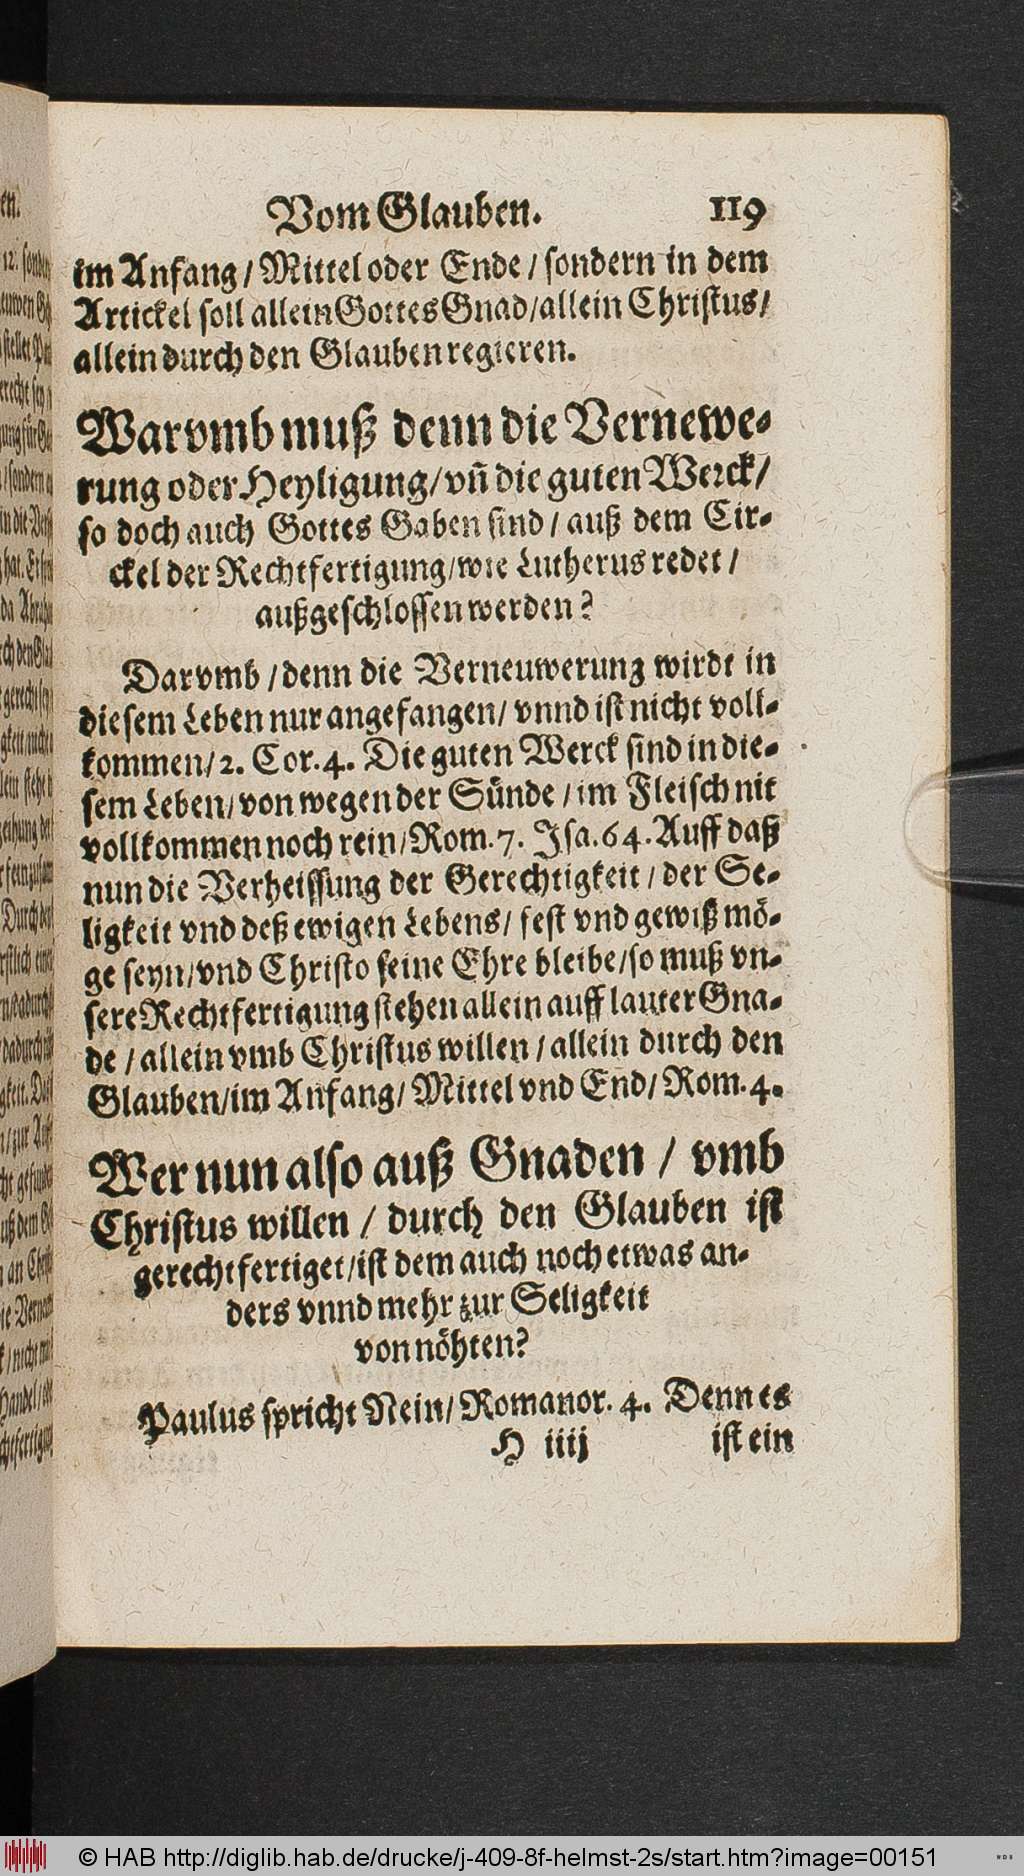 Vom Glauben. 119
im Anfang / Mittel oder Ende / sondern in dem
Artickel soll allein Gottes Gnad / allein Christus /
allein durch den Glauben regieren.
Warvmb muß denn die Vernewe-
rung oder Heyligung / vn̄ die guten Werck /
so doch auch Gottes Gaben sind / auß dem Cir-
ckel der Rechtfertigung / wie Lutherus redet /
außgeschlossen werden?
Darvmb / denn die Verneuwerung wirdt in
diesem Leben nur angefangen / vnnd ist nicht voll-
kommen / 2. Cor. 4. Die guten Werck sind in die-
sem Leben / von wegen der Sünde / im Fleisch nit
vollkommen noch rein / Rom. 7. Isa. 64. Auff daß
nun die Verheissung der Gerechtigkeit / der Se-
ligkeit vnd deß ewigen Lebens / fest vnd gewiß mö-
ge seyn / vnd Christo seine Ehre bleibe / so muß vn-
sere Rechtfertigung stehen allein auff lauter Gna-
de / allein vmb Christus willen / allein durch den
Glauben / im Anfang / Mittel vnd End / Rom. 4.
Wer nun also auß Gnaden / vmb
Christus willen / durch den Glauben ist
gerechtfertiget / ist dem auch noch etwas an-
ders vnnd mehr zur Seligkeit
von nöhten?
Paulus spricht Nein / Romanor. 4. Denn es
H iiij ist ein
© HAB http://diglib.hab.de/drucke/j-409-8f-helmst-2s/start.htm?image=00151